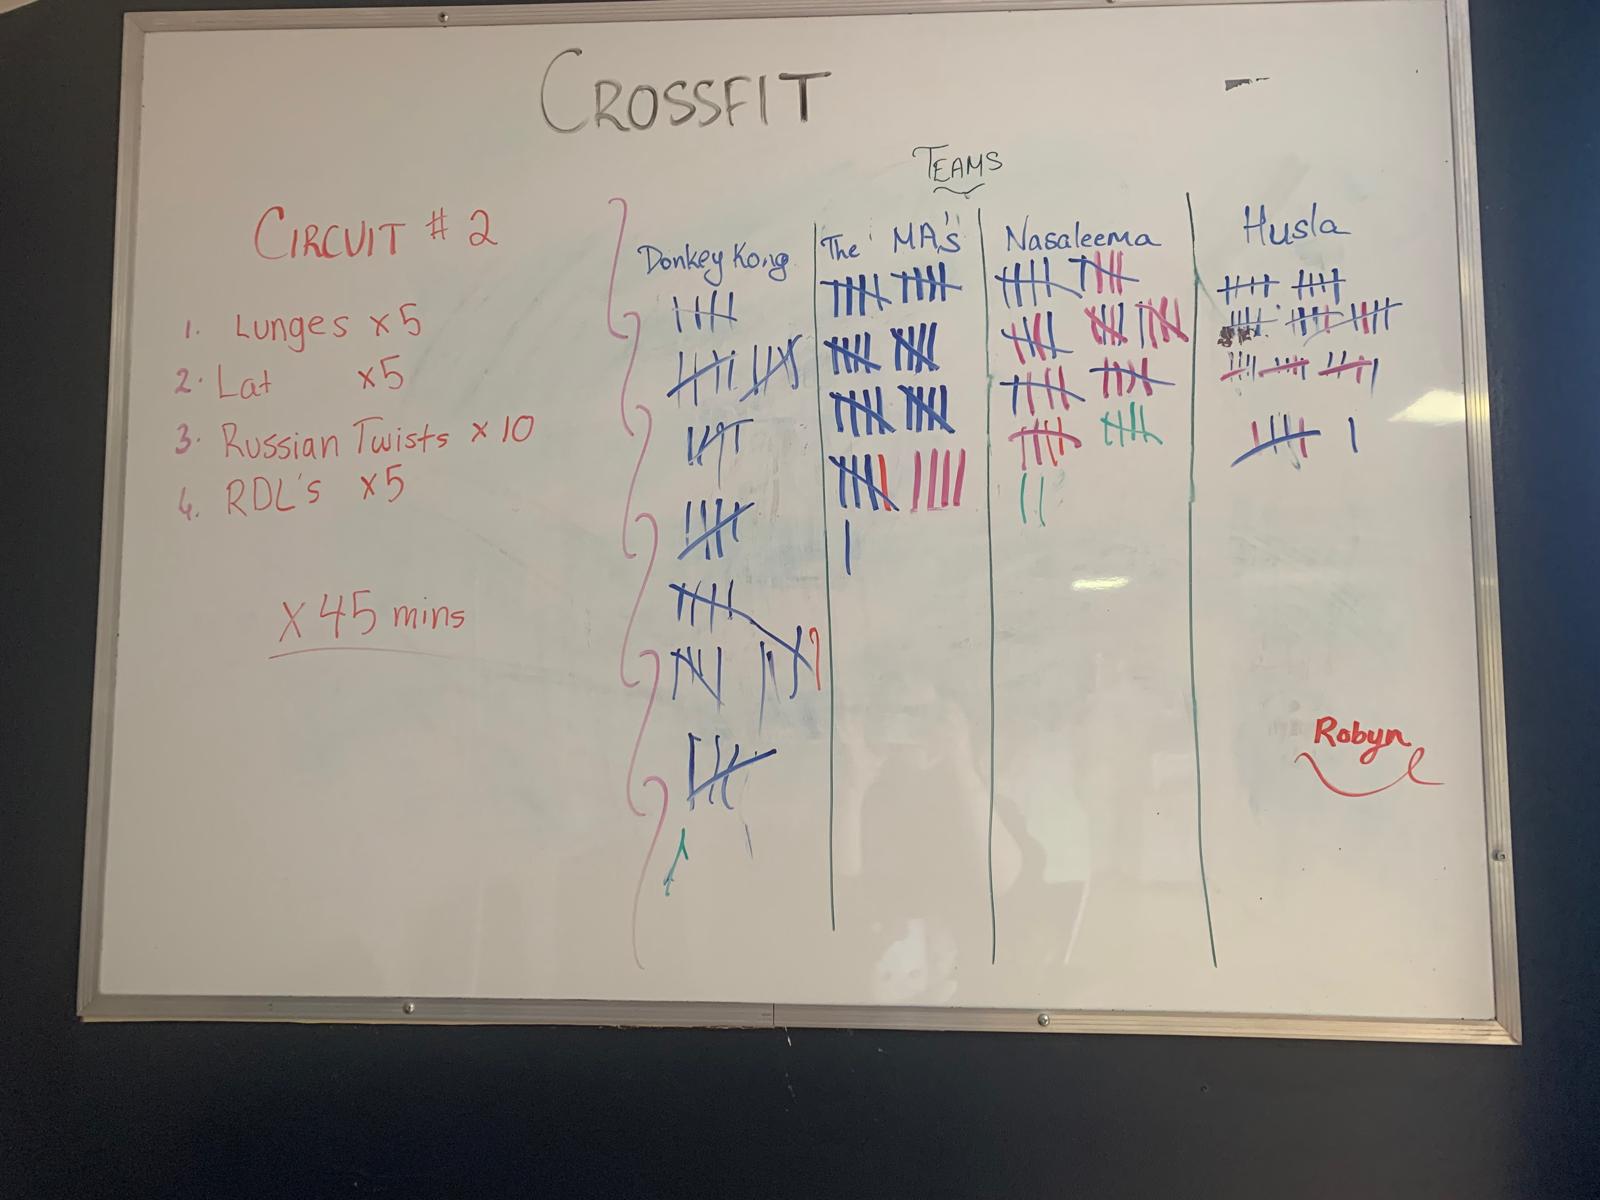 CROSSFIT
TEAMS
CIRCUIT # 2
1. Lunges x 5
2. Lat x5
3. Russian Twists x 10
4. RDL's x5
x 45 mins
Donkey Kong
The MA's
Nasaleema
Husla
Robyn